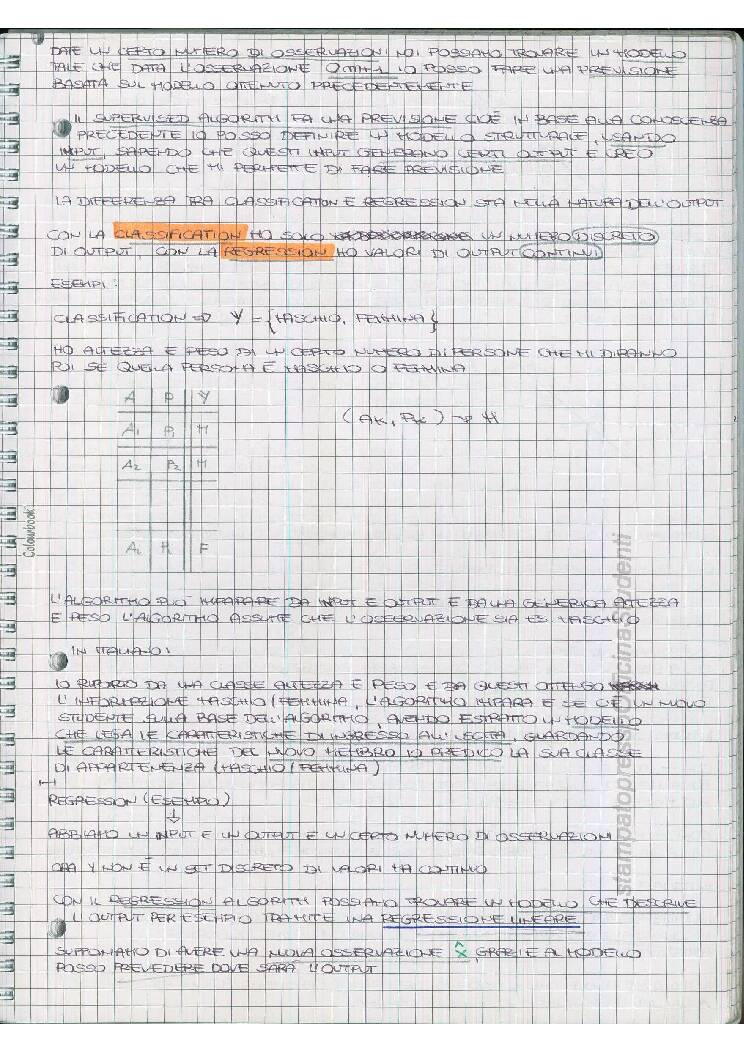 DATE UN CERTO NUMERO DI OSSERVAZIONI NOI POSSIAMO TROVARE UN MODELLO
TALE CHE DATA L'OSSERVAZIONE Om+1 IO POSSO FARE UNA PREVISIONE
BASATA SUL MODELLO OTTENUTO PRECEDENTEMENTE
IL SUPERVISED ALGORITHM FA UNA PREVISIONE CIOÈ IN BASE ALLA CONOSCENZA
PRECEDENTE IO POSSO DEFINIRE UN MODELLO STRUTTURALE, USANDO
INPUT, SAPENDO CHE QUESTI INPUT GENERANO CERTI OUTPUT E CREO
UN MODELLO CHE MI PERMETTE DI FARE PREVISIONE
LA DIFFERENZA TRA CLASSIFICATION E REGRESSION STA NELLA NATURA DELL'OUTPUT
CON LA CLASSIFICATION HO SOLO UN NUMERO DISCRETO
DI OUTPUT, CON LA REGRESSION HO VALORI DI OUTPUT CONTINUI
ESEMPI:
CLASSIFICATION => Y = {MASCHIO, FEMMINA}
HO ALTEZZA E PESO DI UN CERTO NUMERO DI PERSONE CHE MI DIRANNO
POI SE QUELLA PERSONA È MASCHIO O FEMMINA
A P Y
A1 P1 M
(AK, PK) → M
A2 P2 M
F
Colourbook
L'ALGORITMO PUÒ IMPARARE DA INPUT E OUTPUT E DALLA GENERICA ALTEZZA
E PESO L'ALGORITMO ASSUME CHE L'OSSERVAZIONE SIA ES. MASCHIO
IN ITALIANO:
IO DA UNA CLASSE ALTEZZA E PESO E DA QUESTI OTTENGO
L'INFORMAZIONE MASCHIO/FEMMINA, L'ALGORITMO IMPARA E SE C'È UN NUOVO
STUDENTE, SULLA BASE DELL'ALGORITMO, AVENDO ESTRATTO UN MODELLO
CHE LEGA LE CARATTERISTICHE DI INGRESSO ALL'USCITA, GUARDANDO
LE CARATTERISTICHE DEL NUOVO MEMBRO IO PREDICO LA SUA CLASSE
DI APPARTENENZA (MASCHIO/FEMMINA)
REGRESSION (ESEMPIO)
↓
ABBIAMO UN INPUT E UN OUTPUT E UN CERTO NUMERO DI OSSERVAZIONI
ORA Y NON È UN SET DISCRETO DI VALORI MA CONTINUO
CON IL REGRESSION ALGORITHM POSSIAMO TROVARE UN MODELLO CHE DESCRIVE
L'OUTPUT PER ESEMPIO TRAMITE UNA REGRESSIONE LINEARE
SUPPONIAMO DI AVERE UNA NUOVA OSSERVAZIONE x̂, GRAZIE AL MODELLO
POSSO PREVEDERE DOVE SARÀ L'OUTPUT
stampatopresso Officina Studenti